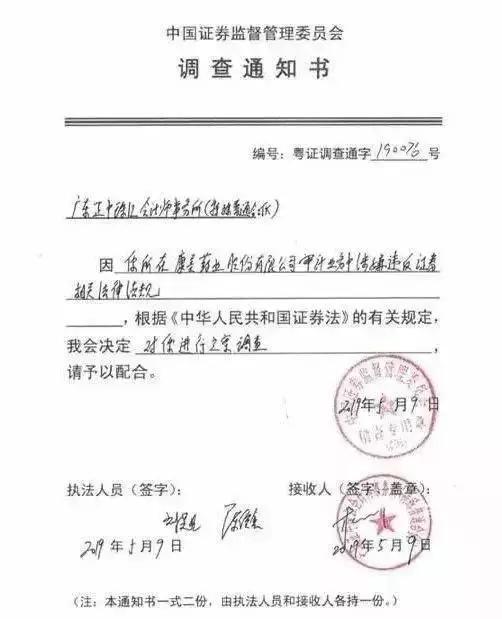 中国证券监督管理委员会
调查通知书
编号：粤证调查通字 190076 号
广东正中珠江会计师事务所(特殊普通合伙)
因 你所在康美药业股份有限公司审计业务中涉嫌违反证券
相关法律法规
，根据《中华人民共和国证券法》的有关规定，
我会决定 对你进行立案调查 ，
请予以配合。
2019年5月9日
执法人员（签字）： 接收人（签字、盖章）：
2019年5月9日 2019年5月9日
（注：本通知书一式二份，由执法人员和接收人各持一份。）